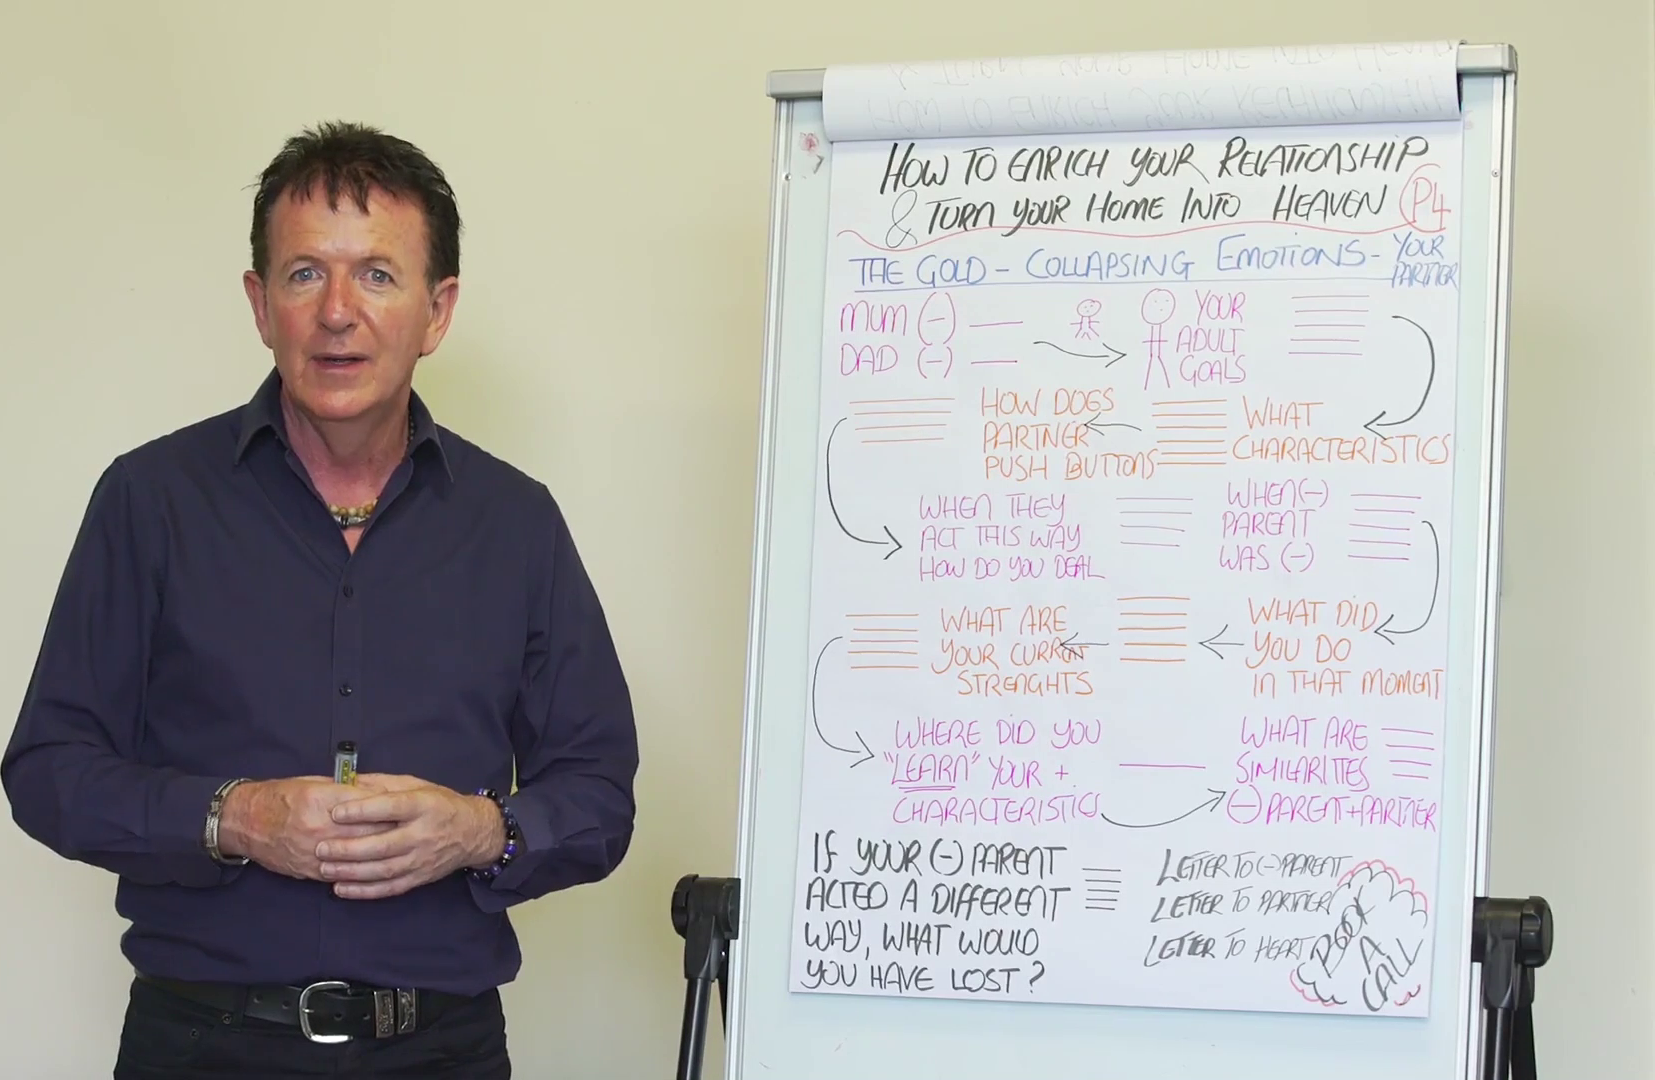 HOW TO ENRICH YOUR RELATIONSHIP
& TURN YOUR HOME INTO HEAVEN P4
THE GOLD - COLLAPSING EMOTIONS - YOUR PARTNER
MUM (-)
DAD (-)
YOUR
ADULT
GOALS
WHAT
CHARACTERISTICS
HOW DOES
PARTNER
PUSH BUTTONS
WHEN THEY
ACT THIS WAY
HOW DO YOU DEAL
WHEN (-)
PARENT
WAS (-)
WHAT DID
YOU DO
IN THAT MOMENT
WHAT ARE
YOUR CURRENT
STRENGHTS
WHERE DID YOU
"LEARN" YOUR +
CHARACTERISTICS
WHAT ARE
SIMILARITIES
(-) PARENT + PARTNER
IF YOUR (-) PARENT
ACTED A DIFFERENT
WAY, WHAT WOULD
YOU HAVE LOST?
LETTER TO (-) PARENT
LETTER TO PARTNER
LETTER TO HEART
BOOK
A
CALL